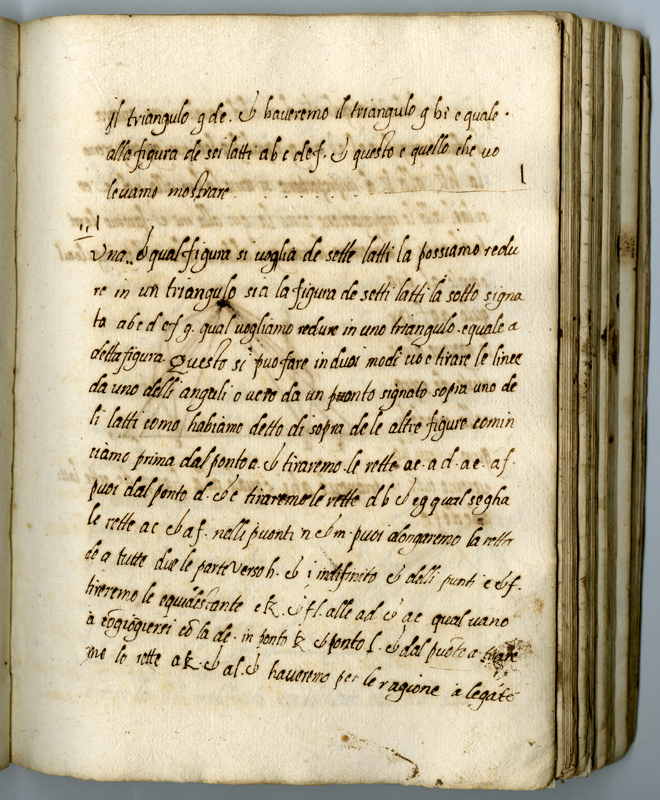 Il triangulo g de. & haveremo il triangulo g hi e quale.
alla figura de sei latti a b c d e f. & questo e quello che vo
levamo mostrare
Una.. & qual figura si voglia de sette latti la possiamo redu
re in un triangulo sia la figura de setti latti la sotto signa
ta a b c d e f g. qual vogliamo redure in uno triangulo. equale a
detta figura. Questo si puo fare in duoi modi cioe tirare le linee
da uno delli anguli o vero da un ponto signato sopra uno de
li latti como habiamo detto di sopra de le altre figure comin
ciamo prima dal ponto a. & tiraremo. le rette ac. a d. ae. af.
puoi dal ponto d. & e tiraremo le rette d b & eg qual segha
le rette a c & a f. nelli puonti n & m. puoi alongaremo la retta
de a tutte due le parte verso h. & i indifinito & dalli punti c & f.
tireremo le equidestante c k. & f l. alle ad & ae qual vano
a cōgiōgiersi cō la de. in ponto k & ponto l. & dal puōto a. tirare
mo le rette a k. & al. & haveremo per le ragione alegate